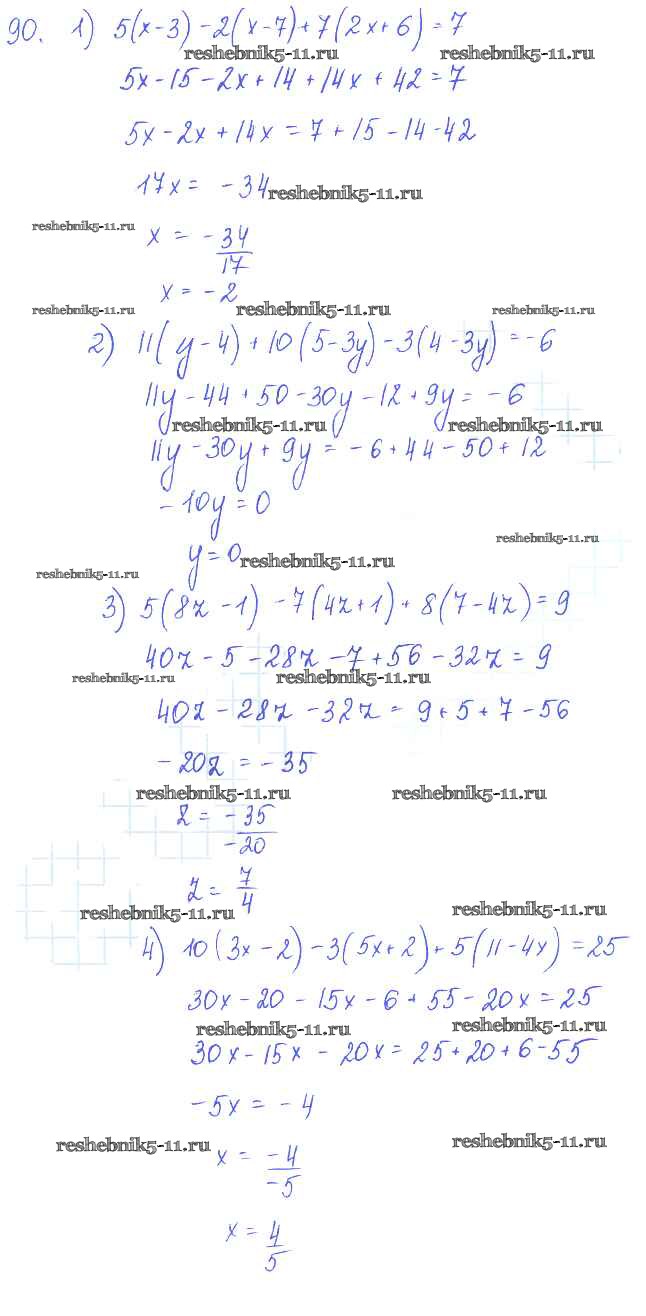 90. 1) 5(x-3)-2(x-7)+7(2x+6)=7
reshebnik5-11.ru reshebnik5-11.ru
5x-15-2x+14+14x+42=7
5x-2x+14x=7+15-14-42
17x= -34
reshebnik5-11.ru
reshebnik5-11.ru
x = -34/17
x = -2
reshebnik5-11.ru reshebnik5-11.ru reshebnik5-11.ru
2) 11(y-4)+10(5-3y)-3(4-3y)=-6
11y-44+50-30y-12+9y=-6
reshebnik5-11.ru reshebnik5-11.ru
11y-30y+9y=-6+44-50+12
-10y=0
reshebnik5-11.ru
y=0
reshebnik5-11.ru
reshebnik5-11.ru
3) 5(8z-1)-7(4z+1)+8(7-4z)=9
40z-5-28z-7+56-32z=9
reshebnik5-11.ru reshebnik5-11.ru
40z-28z-32z=9+5+7-56
-20z=-35
reshebnik5-11.ru reshebnik5-11.ru
z=-35/-20
z=7/4
reshebnik5-11.ru reshebnik5-11.ru
4) 10(3x-2)-3(5x+2)+5(11-4x)=25
30x-20-15x-6+55-20x=25
reshebnik5-11.ru reshebnik5-11.ru
30x-15x-20x=25+20+6-55
-5x=-4
reshebnik5-11.ru reshebnik5-11.ru
x=-4/-5
x=4/5